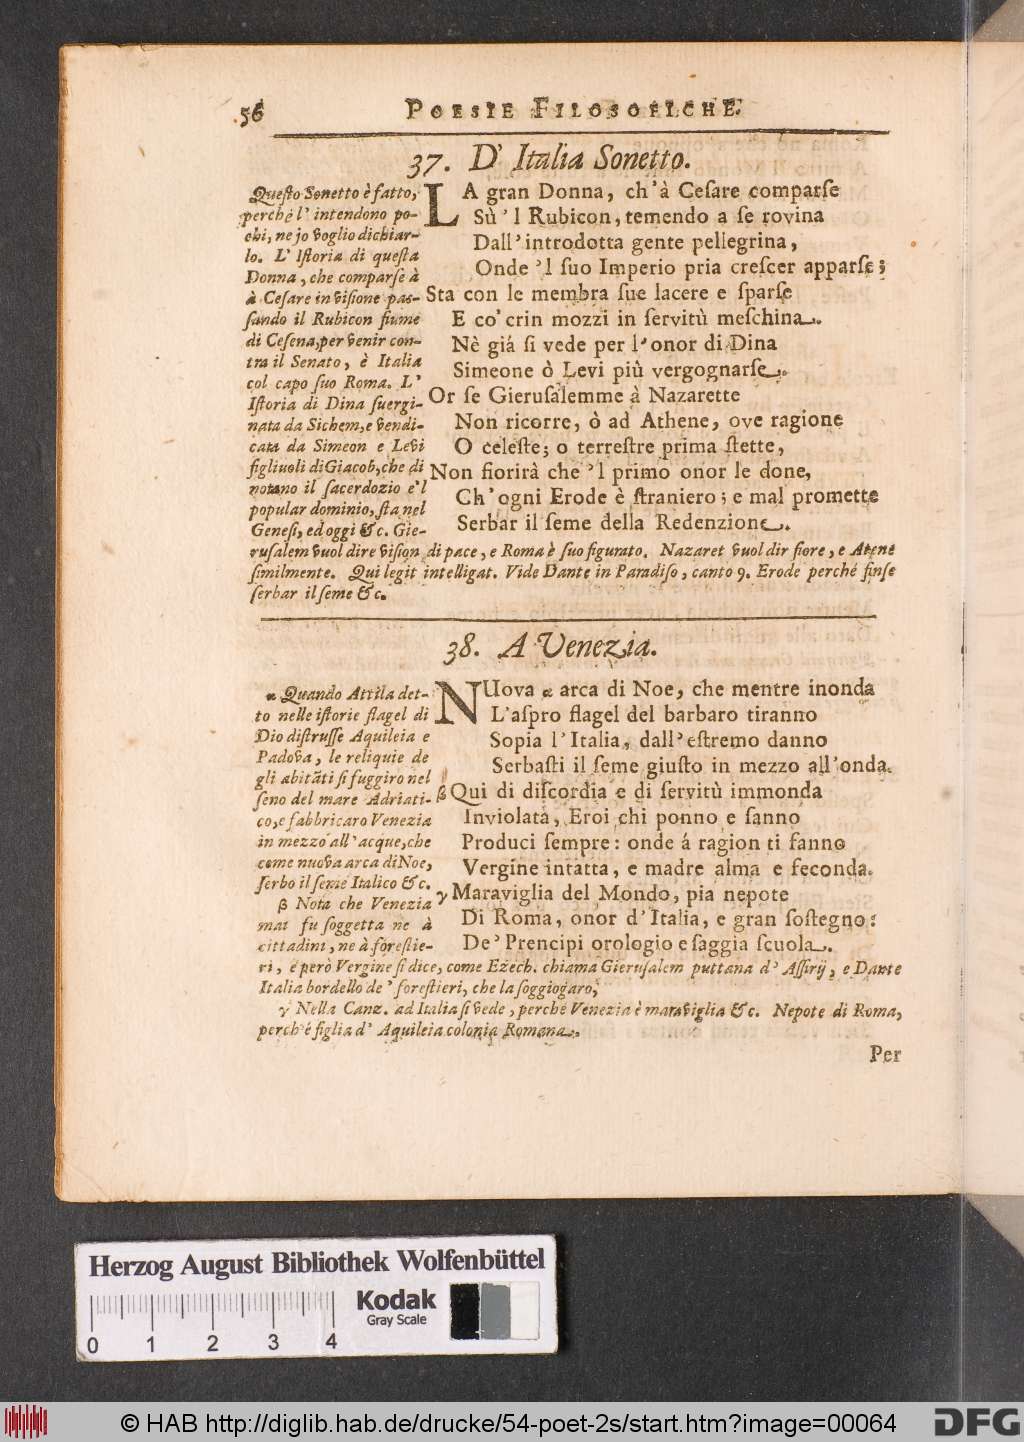 56 POESIE FILOSOFICHE.
37. D' Italia Sonetto.
Questo Sonetto è fatto,
perché l' intendono po-
chi, ne jo voglio dichiar-
lo. L' Istoria di questa
Donna, che comparse à
à Cesare in visione pas-
sando il Rubicon fiume
di Cesena, per venir con-
tra il Senato, è Italia
col capo suo Roma. L'
Istoria di Dina svergi-
nata da Sichem, e vendi-
cata da Simeon e Levi
figliuoli di Giacob, che di
notano il sacerdozio e'l
popular dominio, sta nel
Genesi, ed oggi &c. Gie-
rusalem vuol dire vision di pace, e Roma è suo figurato. Nazaret vuol dir fiore, e Atene
similmente. Qui legit intelligat. Vide Dante in Paradiso, canto 9. Erode perché finse
serbar il seme &c.
LA gran Donna, ch'à Cesare comparse
Sù 'l Rubicon, temendo a se rovina
Dall' introdotta gente pellegrina,
Onde 'l suo Imperio pria crescer apparse;
Sta con le membra sue lacere e sparse
E co' crin mozzi in servitù meschina.
Nè giá si vede per l' onor di Dina
Simeone ò Levi più vergognarse.
Or se Gierusalemme à Nazarette
Non ricorre, ò ad Athene, ove ragione
O celeste; o terrestre prima stette,
Non fiorirà che 'l primo onor le done,
Ch' ogni Erode è straniero; e mal promette
Serbar il seme della Redenzione.
38. A Venezia.
α Quando Attila det-
to nelle istorie flagel di
Dio distrusse Aquileia e
Padova, le reliquie de
gli abitãti si fuggiro nel
seno del mare Adriati-
co, e fabbricaro Venezia
in mezzo all' acque, che
come nuova arca di Noe,
serbo il seme Italico &c.
β Nota che Venezia
mai fu soggetta ne à
cittadini, ne à forestie-
ri, e però Vergine si dice, come Ezech. chiama Gierusalem puttana d' Assirij, e Dante
Italia bordello de' forestieri, che la soggiogaro,
γ Nella Canz. ad Italia si vede, perché Venezia è maraviglia &c. Nepote di Roma,
perch' é figlia d' Aquileia colonia Romana.
NUova α arca di Noe, che mentre inonda
L'aspro flagel del barbaro tiranno
Sopia l'Italia, dall' estremo danno
Serbasti il seme giusto in mezzo all'onda.
β Qui di discordia e di servitù immonda
Inviolata, Eroi chi ponno e sanno
Produci sempre: onde á ragion ti fanno
Vergine intatta, e madre alma e feconda.
γ Maraviglia del Mondo, pia nepote
Di Roma, onor d'Italia, e gran sostegno:
De' Prencipi orologio e saggia scuola.
Per
Herzog August Bibliothek Wolfenbüttel
0 1 2 3 4
Kodak
Gray Scale
© HAB http://diglib.hab.de/drucke/54-poet-2s/start.htm?image=00064
DFG